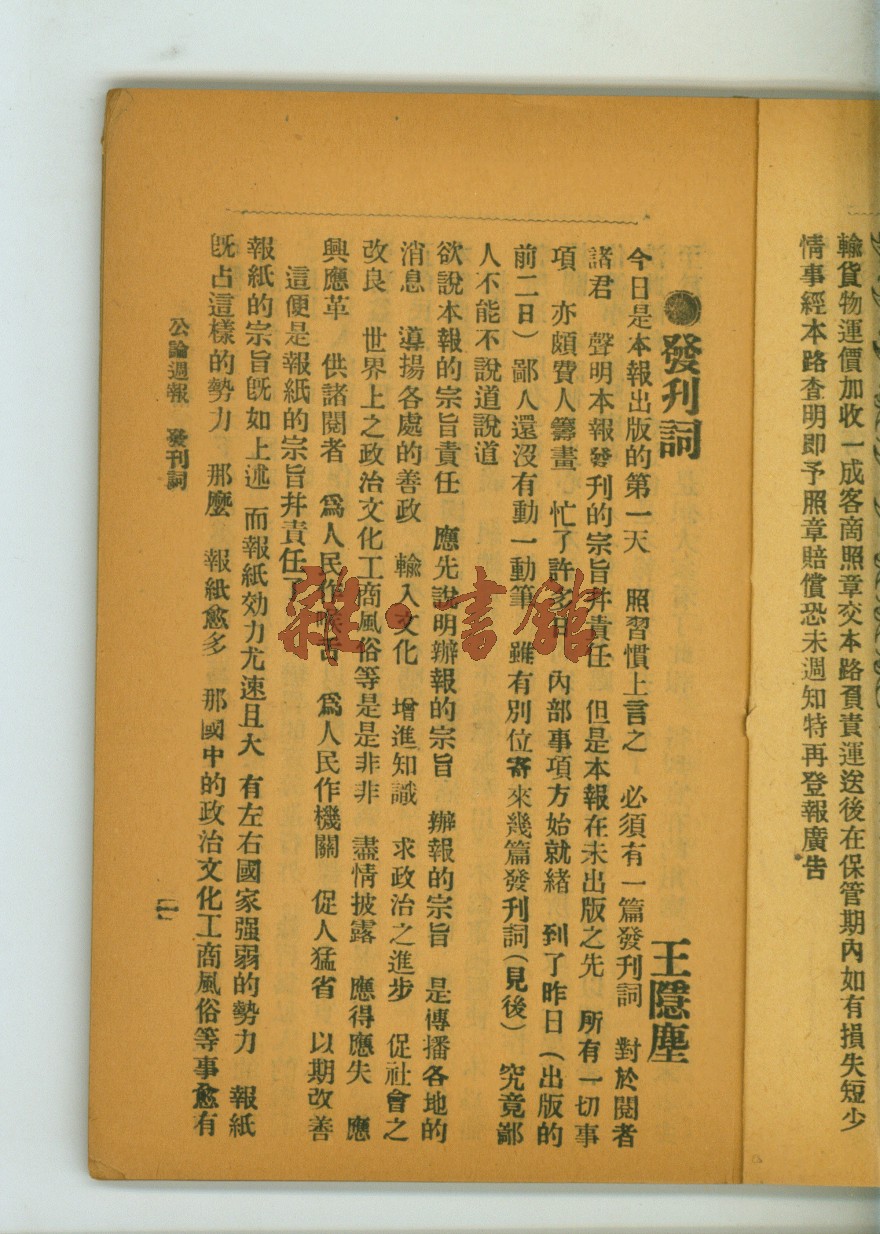 輸貨物運價加收一成客商照章交本路負責運送後在保管期內如有損失短少
情事經本路查明即予照章賠償恐未週知特再登報廣告
●發刋詞
王隱塵
今日是本報出版的第一天　照習慣上言之　必須有一篇發刋詞　對於閱者
諸君　聲明本報發刋的宗旨幷責任　但是本報在未出版之先　所有一切事
項　亦頗費人籌畫　忙了許多日　內部事項方始就緒　到了昨日（出版的
前二日）鄙人還沒有動一動筆　雖有別位寄來幾篇發刋詞（見後）　究竟鄙
人不能不說道說道
欲說本報的宗旨責任　應先說明辦報的宗旨　辦報的宗旨　是傳播各地的
消息　導揚各處的善政　輸入文化　增進知識　求政治之進步　促社會之
改良　世界上之政治文化工商風俗等是是非非　盡情披露　應得應失　應
興應革　供諸閱者　爲人民作喉舌　爲人民作機關　促人猛省　以期改善
這便是報紙的宗旨幷責任了
報紙的宗旨旣如上述　而報紙効力尤速且大　有左右國家强弱的勢力　報紙
旣占這樣的勢力　那麼　報紙愈多　那國中的政治文化工商風俗等事愈有
公論週報　發刋詞
一
雜·書館